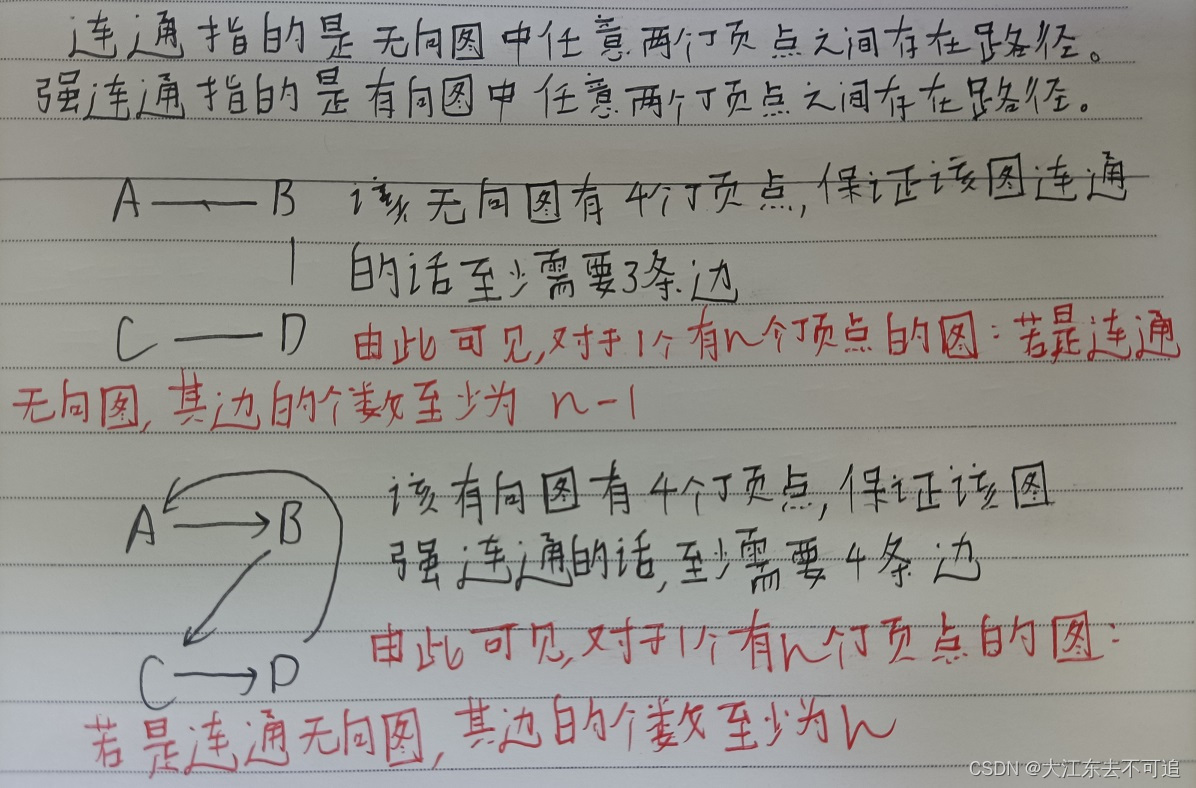 连通指的是无向图中任意两个顶点之间存在路径。
强连通指的是有向图中任意两个顶点之间存在路径。
A — B 该无向图有4个顶点,保证该图连通
的话至少需要3条边
C — D 由此可见,对于1个有n个顶点的图:若是连通
无向图,其边的个数至少为 n-1
该有向图有4个顶点,保证该图
A → B
强连通的话,至少需要4条边
由此可见,对于1个有n个顶点的图:
C → D
若是连通无向图,其边的个数至少为n
CSDN @大江东去不可追